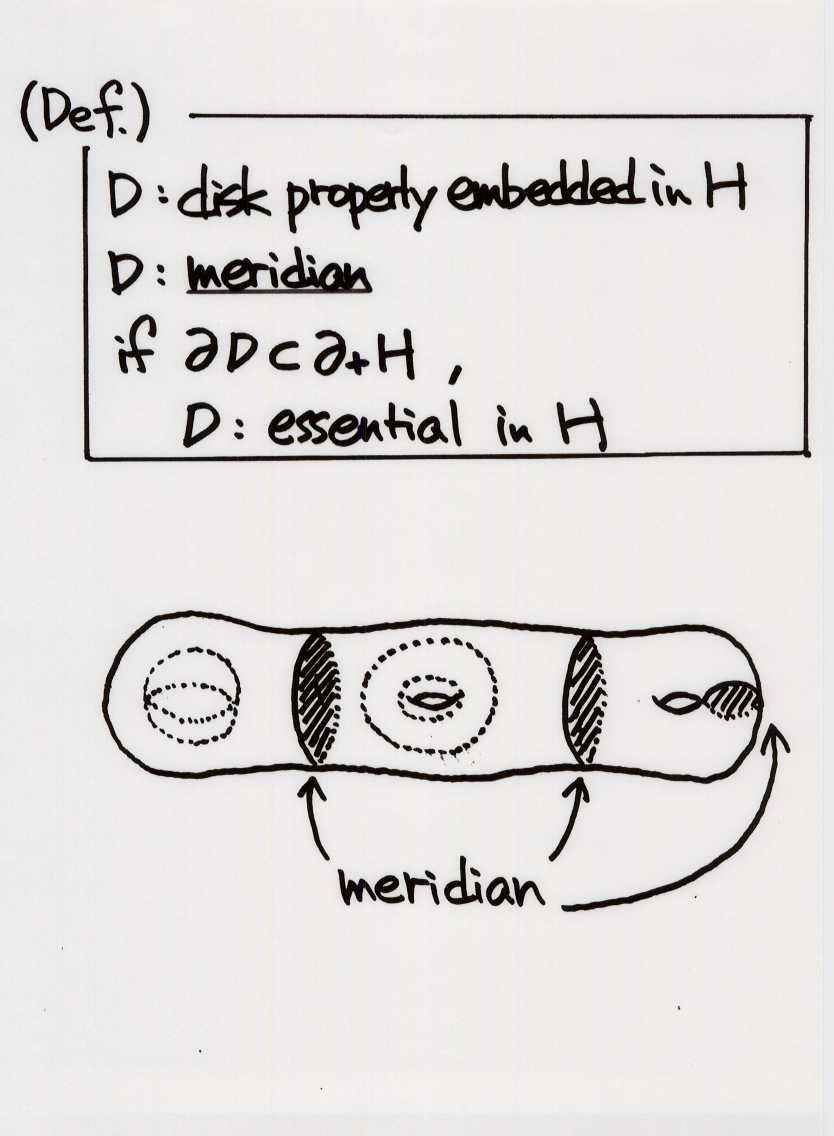 (Def.)
D : disk properly embedded in H
D : meridian
if ∂D ⊂ ∂₊H ,
D : essential in H
meridian